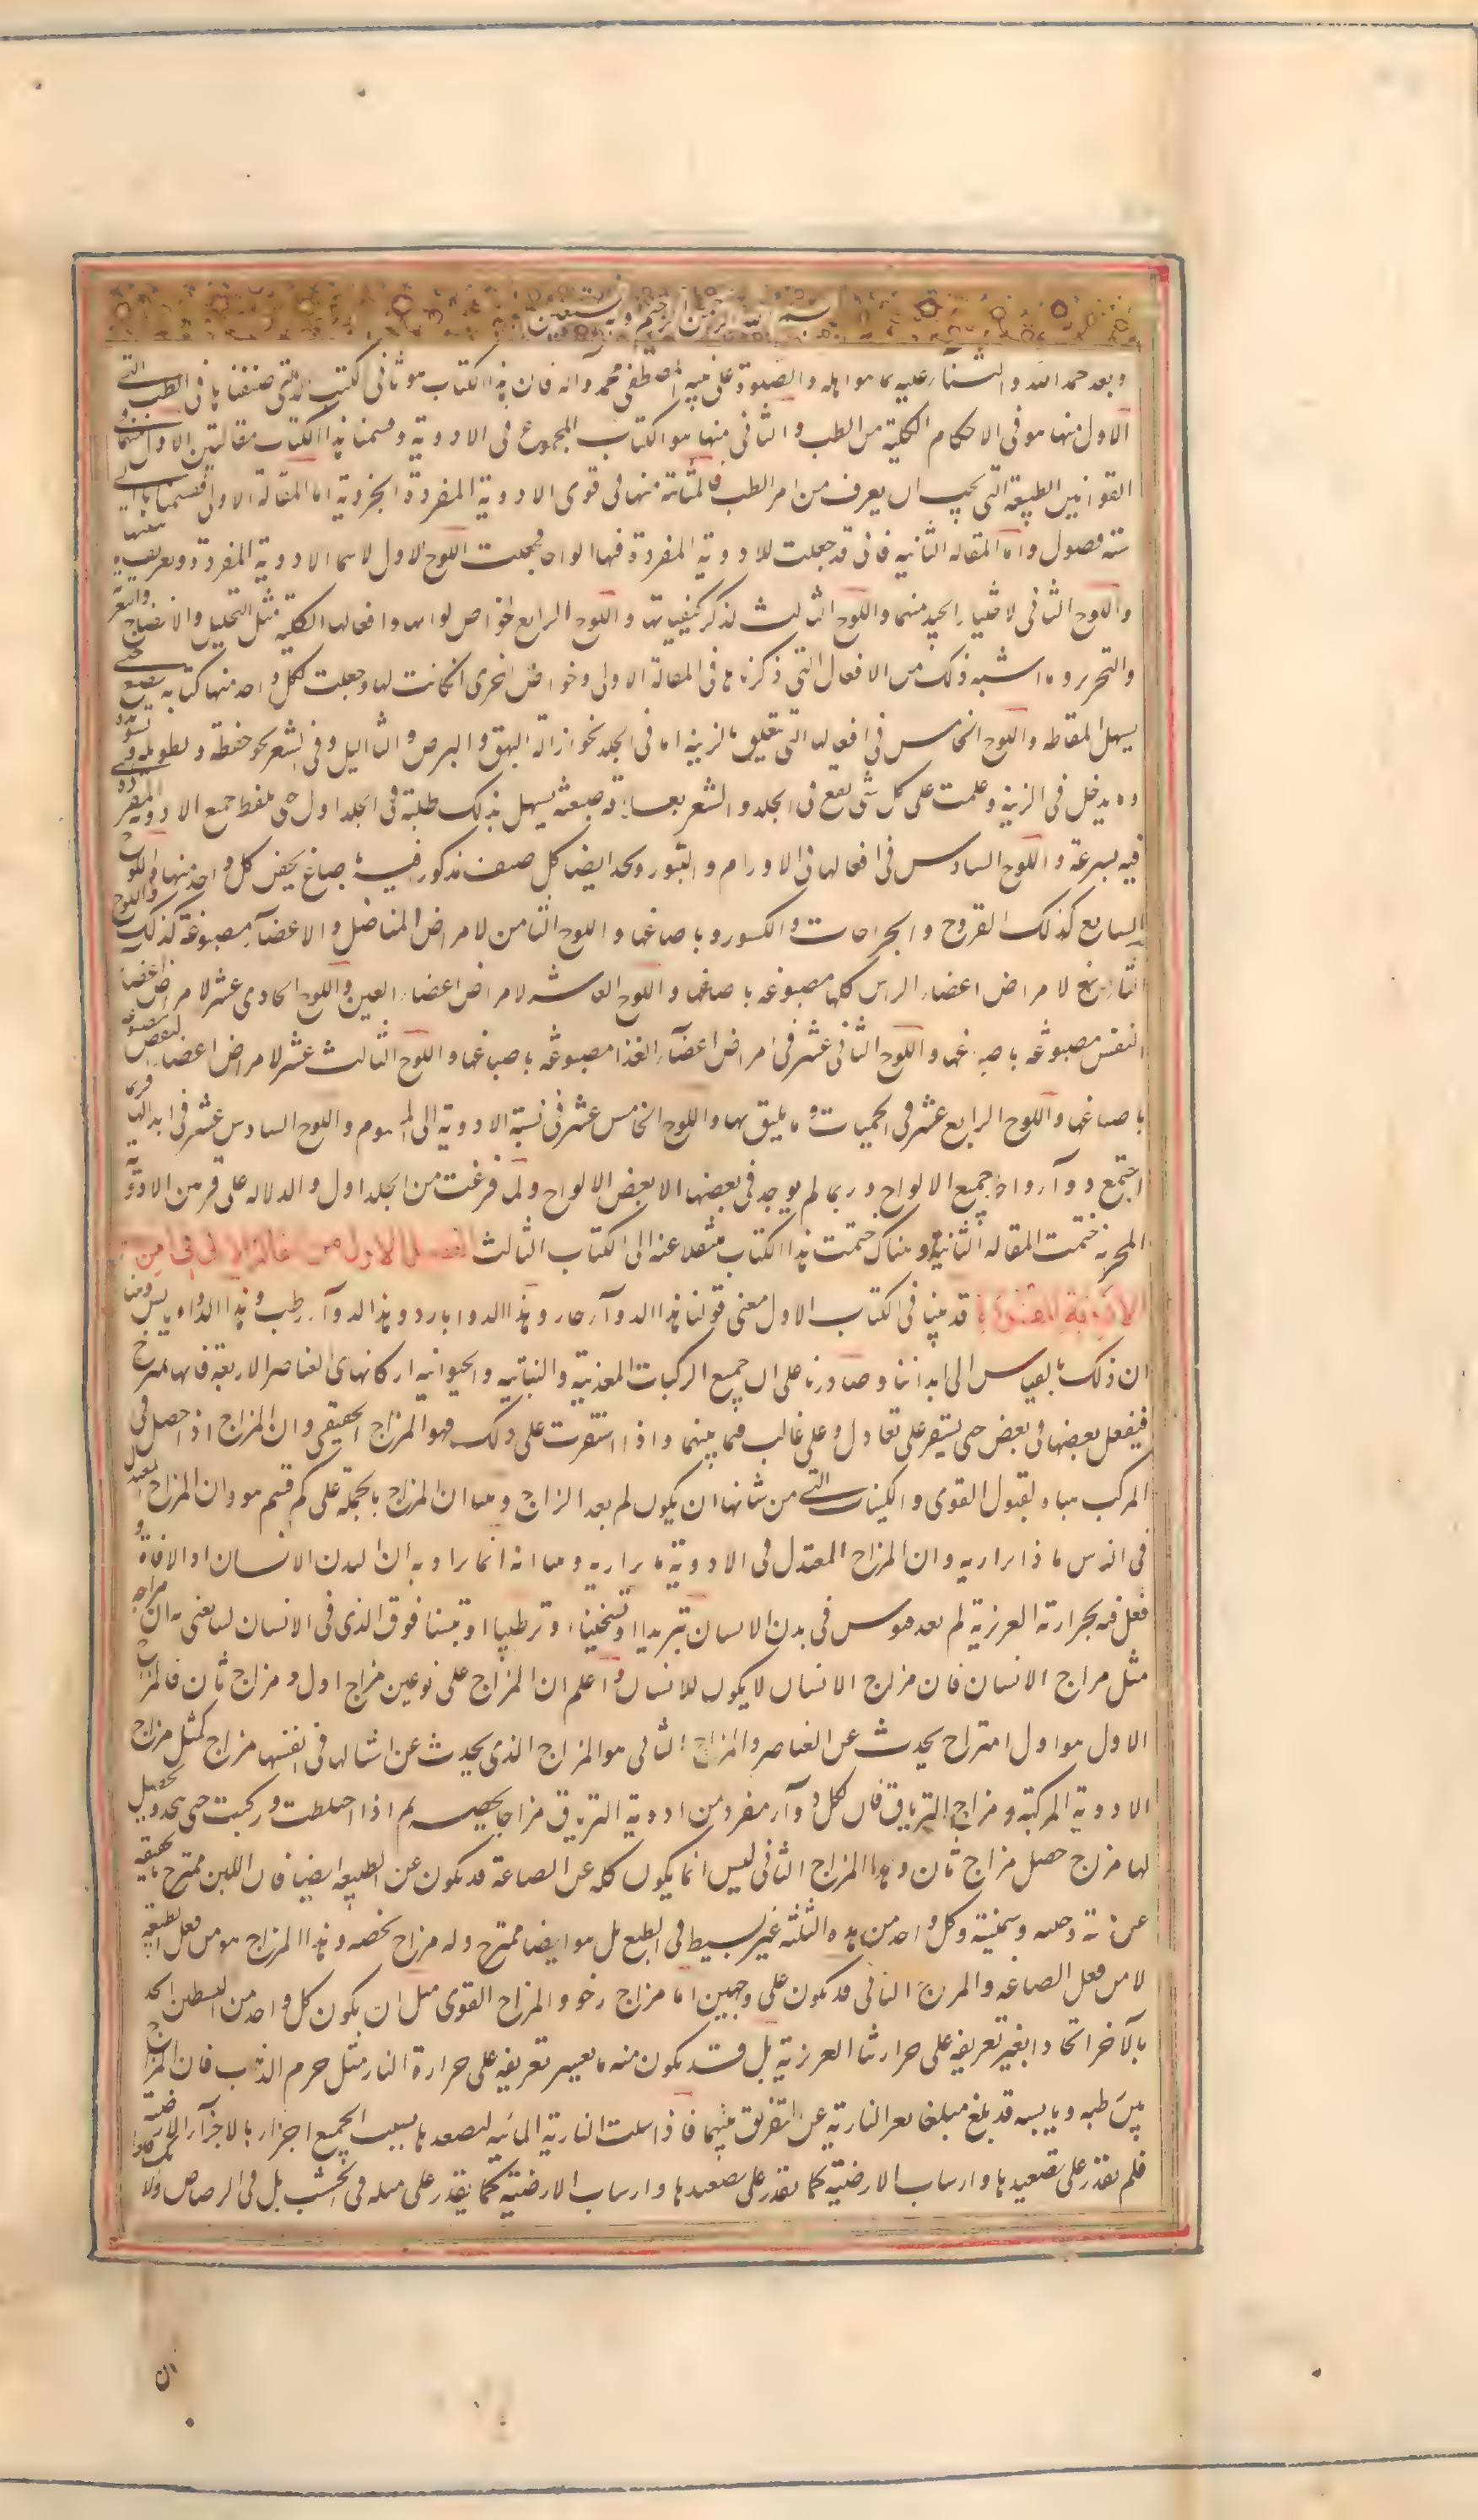 بسم الله الرحمن الرحيم وبه نستعين
وبعد حمد الله والثناء عليه بما هو اهله والصلوة على نبيه المصطفى محمد وآله فان هذا الكتاب هو ثانى الكتب التى صنفناها فى الطب التى
الاول منها هو فى الاحكام الكلية من الطب والثانى منها هو الكتاب المجموع فى الادوية وقسمنا هذا الكتاب مقالتين الاول منهما فى
القوانين الطبيعة التى يجب ان يعرف من امر الطب والثانية منها فى قوى الادوية المفردة الجزوية اما المقالة الاولى فقسمناها الى
سته فصول واما المقاله الثانيه فانى قد جعلت للادوية المفردة فيها الواحا فجعلت اللوح الاول لاسما الادوية المفردة وتعريف ماهيتها
واللوح الثانى لاختيار الجيد منها واللوح الثالث لذكر كيفياتها واللوح الرابع لخواص لوا لها وافعالها الكلية مثل التحليل والانضاج والتغرية
والتخدير وما اشبه ذلك من الافعال التى ذكرناها فى المقالة الاولى وخواص اخرى ان كانت لها وجعلت لكل واحد منها كتابه بصبغ حتى
يسهل التقاطه واللوح الخامس فى افعالها التى تتعلق بالزينة اما فى الجلد نحو ازالة البهق والبرص والثاليل وفى الشعر نحو حفظه وتطويله وتسويده
وما يدخل فى الزينة وعلمت على كل شئ نفع فى الجلد والشعر بعلامة صبغه يسهل بذلك طلبه فى الجلد اول حتى يلتقط جميع الادوية المفردة
فيه بسرعة واللوح السادس فى افعالها فى الاورام والبثور وتجد ايضا كل صنف مذكور فيه باصباغ يخص كل واحد منها واللوح
السابع كذلك القروح والجراحات والكسور وباصباغها واللوح الثامن لامراض المفاصل والاعضآء مصبوغة كذلك واللوح
التاسع لامراض اعضاء الراس كلها مصبوغه باصباغها واللوح العاشر لامراض اعضاء العين واللوح الحادى عشر لامراض اعضاء
النفس مصبوغه باصباغها واللوح الثانى عشر فى امراض اعضآء الغذا مصبوغه باصباغها واللوح الثالث عشر لامراض اعضاء النفض مصبوغة
باصباغها واللوح الرابع عشر فى الحميات وما يليق بها واللوح الخامس عشر فى نسبة الادوية الى السموم واللوح السادس عشر فى ابدالها فربما
اجتمع دوآء واحد جميع الالواح وربما لم يوجد فى بعضها الا بعض الالواح ولما فرغت من الجلد اول والدلاله على قر من الادوية
المجربة ختمت المقاله الثانية وهناك ختمت هذا الكتاب منتقلا عنه الى الكتاب الثالث الفصل الاول من المقالة الاولى فى امزجة
الادوية المفردة قد بينا فى الكتاب الاول معنى قولنا هذا الدوآء حار وهذا الدوا بارد وهذا الدوآء رطب وهذا الدواء يابس وبينا
ان ذلك بالقياس الى ابداننا وصادرنا على ان جميع المركبات المعدنية والنباتيه والحيوانيه اركانها هى العناصر الاربعة فانها تمتزج
فيفعل بعضها فى بعض حتى يستقر على تعادل وعلى غالب فيما بينهما واذا استقرت على ذلك فهو المزاج الحقيقى وان المزاج اذا حصل فى
المركب هياه لقبول القوى والكيفيات التى من شانها ان يكون له بعد المزاج وبينا ان المزاج بالجملة على كم قسم هو وان المزاج المعتدل
فى الناس ماذا يراد به وان المزاج المعتدل فى الادوية ما يراد به وبينا انه انما يراد به ان البدن الانسان اذا لاقاه و
فعل فيه بحرارته الغريزية لم يعد هو يوثر فى بدن الانسان تبريدا او تسخينا او ترطيبا او تيبسا فوق الذى فى الانسان لسنا نعنى به ان مزاجه
مثل مزاج الانسان فان مزاج الانسان لا يكون الا للانسان واعلم ان المزاج على نوعين مزاج اول ومزاج ثان فالمزاج
الاول هو اول امتزاج يحدث عن العناصر والمزاج الثانى هو المزاج الذى يحدث عن اشيا لها فى انفسها مزاج كمثل مزاج
الادوية المركبة ومزاج الترياق فان لكل دوآء مفرد من ادوية الترياق مزاجا يخصه ثم اذا اختلطت وركبت حتى يتحد ويحصل
لها مزاج حصل مزاج ثان وهذا المزاج الثانى ليس انما يكون كله عن الصناعة قد يكون عن الطبيعه ايضا فان اللبن ممتزج بالحقيقه
عن مائية وجبنيه وسمنية وكل واحد من هذه الثلثه غير بسيط فى الطبع بل هو ايضا ممتزج وله مزاج يخصه وهذا المزاج هو من فعل الطبيعة
لا من فعل الصناعه والمزاج الثانى قد يكون على وجهين اما مزاج رخو والمزاج القوى مثل ان يكون كل واحد من البسيطين اتحد
بالآخر اتحادا بغير تعريفه على حرارتنا الغريزية بل قد يكون منه ما يعسر تعريفه على حرارة النار مثل جرم الذهب فان المزاج
بين رطبه ويابسه قد بلغ مبلغا يعجز النارية عن التفريق بينهما فاذا سيلت النارية المائيه لتصعدها تشبثت بجميع اجزائها الاجزآء الارضية
فلم يقدر على تصعيدها وارساب الارضية كما تقدر على تصعيدها وارساب الارضية كما يقدر على مثله فى الخشب بل فى الرصاص ولا
ان